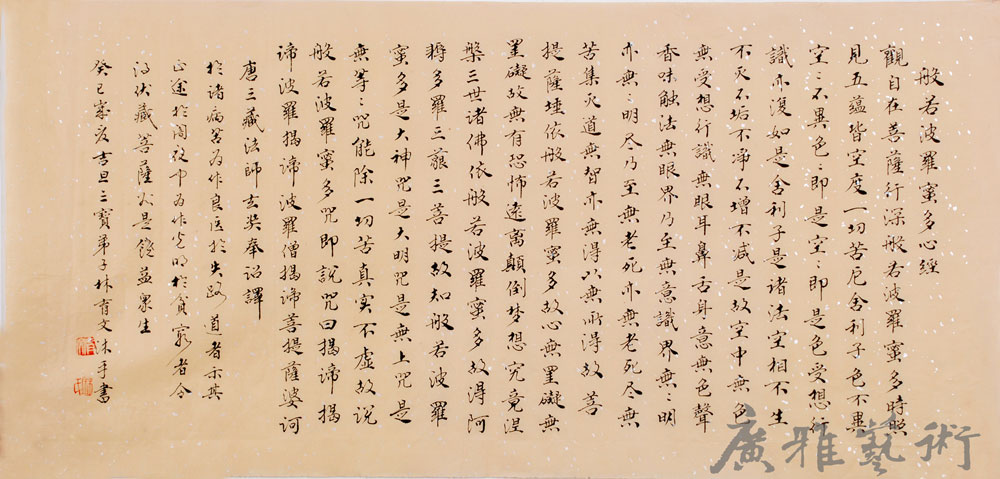 般若波羅蜜多心經
觀自在菩薩行深般若波羅蜜多時照
見五蘊皆空度一切苦厄舍利子色不異
空空不異色色即是空空即是色受想行
識亦復如是舍利子是諸法空相不生
不灭不垢不净不增不减是故空中無色
無受想行識無眼耳鼻舌身意無色聲
香味触法無眼界乃至無意識界無無明
亦無無明尽乃至無老死亦無老死尽無
苦集灭道無智亦無得以無所得故菩
提薩埵依般若波羅蜜多故心無罣礙無
罣礙故無有恐怖遠离顛倒梦想究竟涅
槃三世诸佛依般若波羅蜜多故得阿
耨多羅三藐三菩提故知般若波羅
蜜多是大神咒是大明咒是無上咒是
無等等咒能除一切苦真实不虚故说
般若波羅蜜多咒即説咒曰揭谛揭
谛波羅揭谛波羅僧揭谛菩提薩婆诃
唐三藏法師玄奘奉诏譯
於诸病苦为作良医於失路道者示其
正途於闇夜中为作光明於貧窮者令
得伏藏菩薩如是饒益眾生
癸巳 吉旦三寶弟子林育文沐手書
廣雅藝術